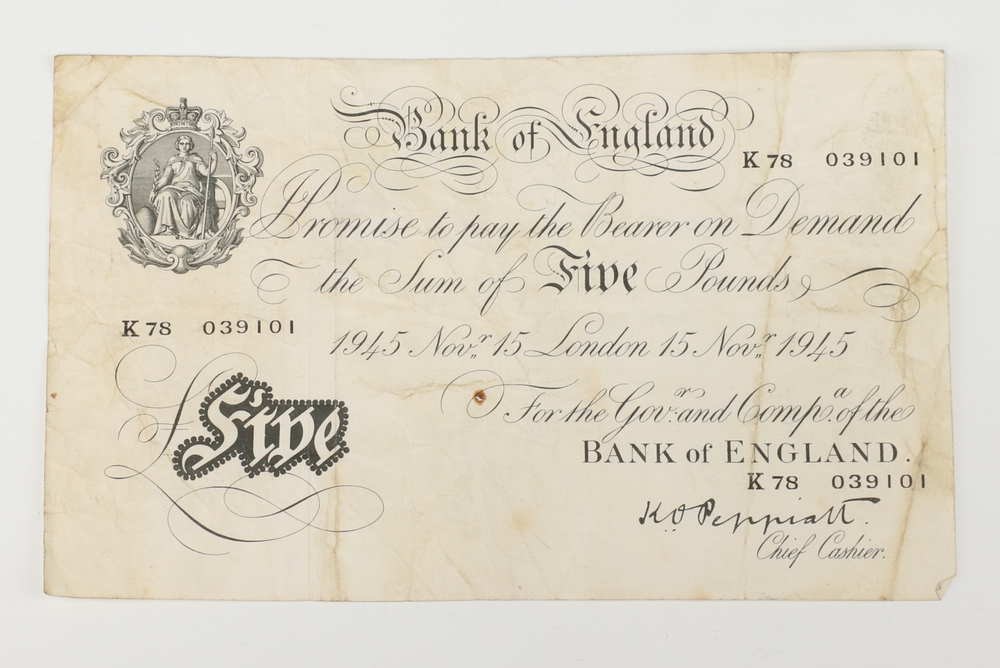 Bank of England
K 78 039101
I Promise to pay the Bearer on Demand
the Sum of Five Pounds
K 78 039101
1945 Nov.r 15 London 15 Nov.r 1945
For the Gov.r and Comp.a of the
£ Five
BANK of ENGLAND.
K 78 039101
K O Peppiatt.
Chief Cashier.